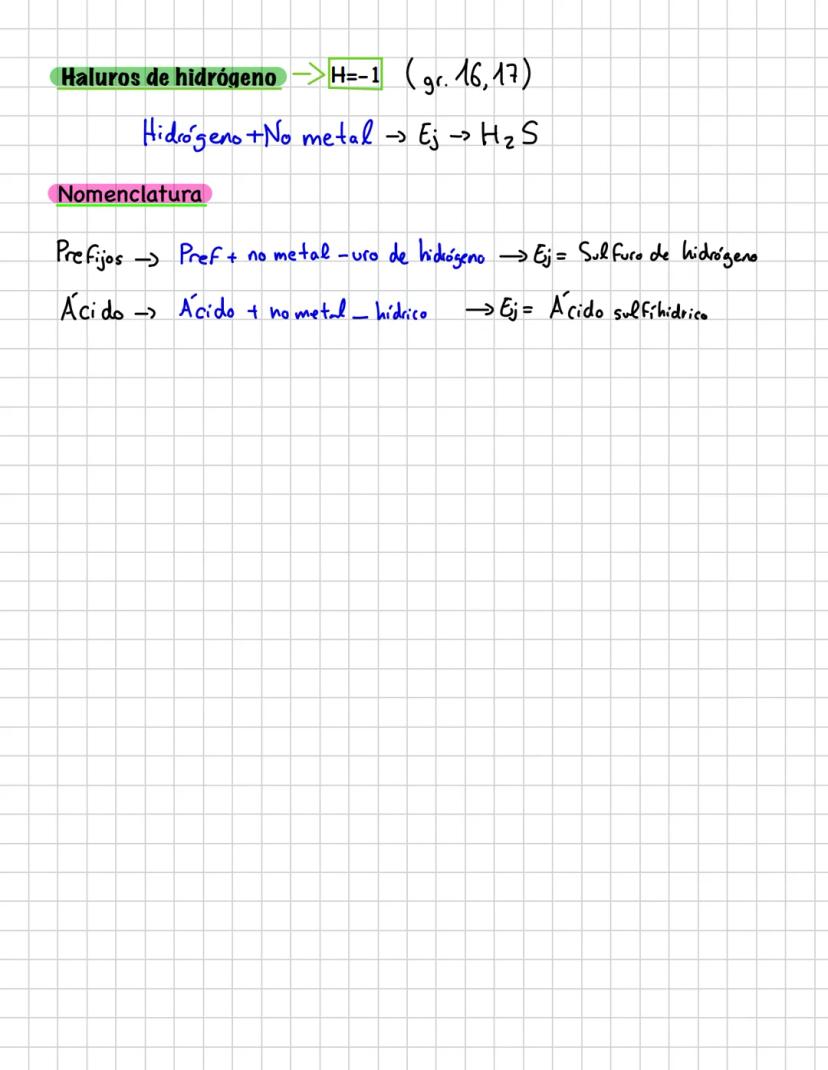 Haluros de hidrógeno → H=-1 (gr. 16, 17)
Hidrógeno + No metal → Ej → H₂S
Nomenclatura
Prefijos → Pref + no metal - uro de hidrógeno → Ej = Sulfuro de hidrógeno
Ácido → Ácido + no metal - hídrico → Ej = Ácido sulfihidrico